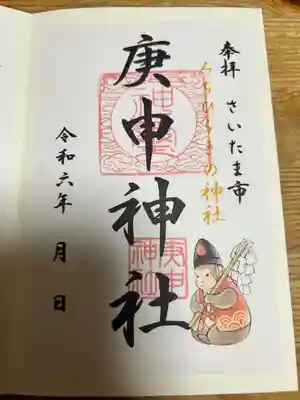 奉拝
さいたま市
みちひらきの神社
庚申神社
庚申
神社
令和六年 月 日